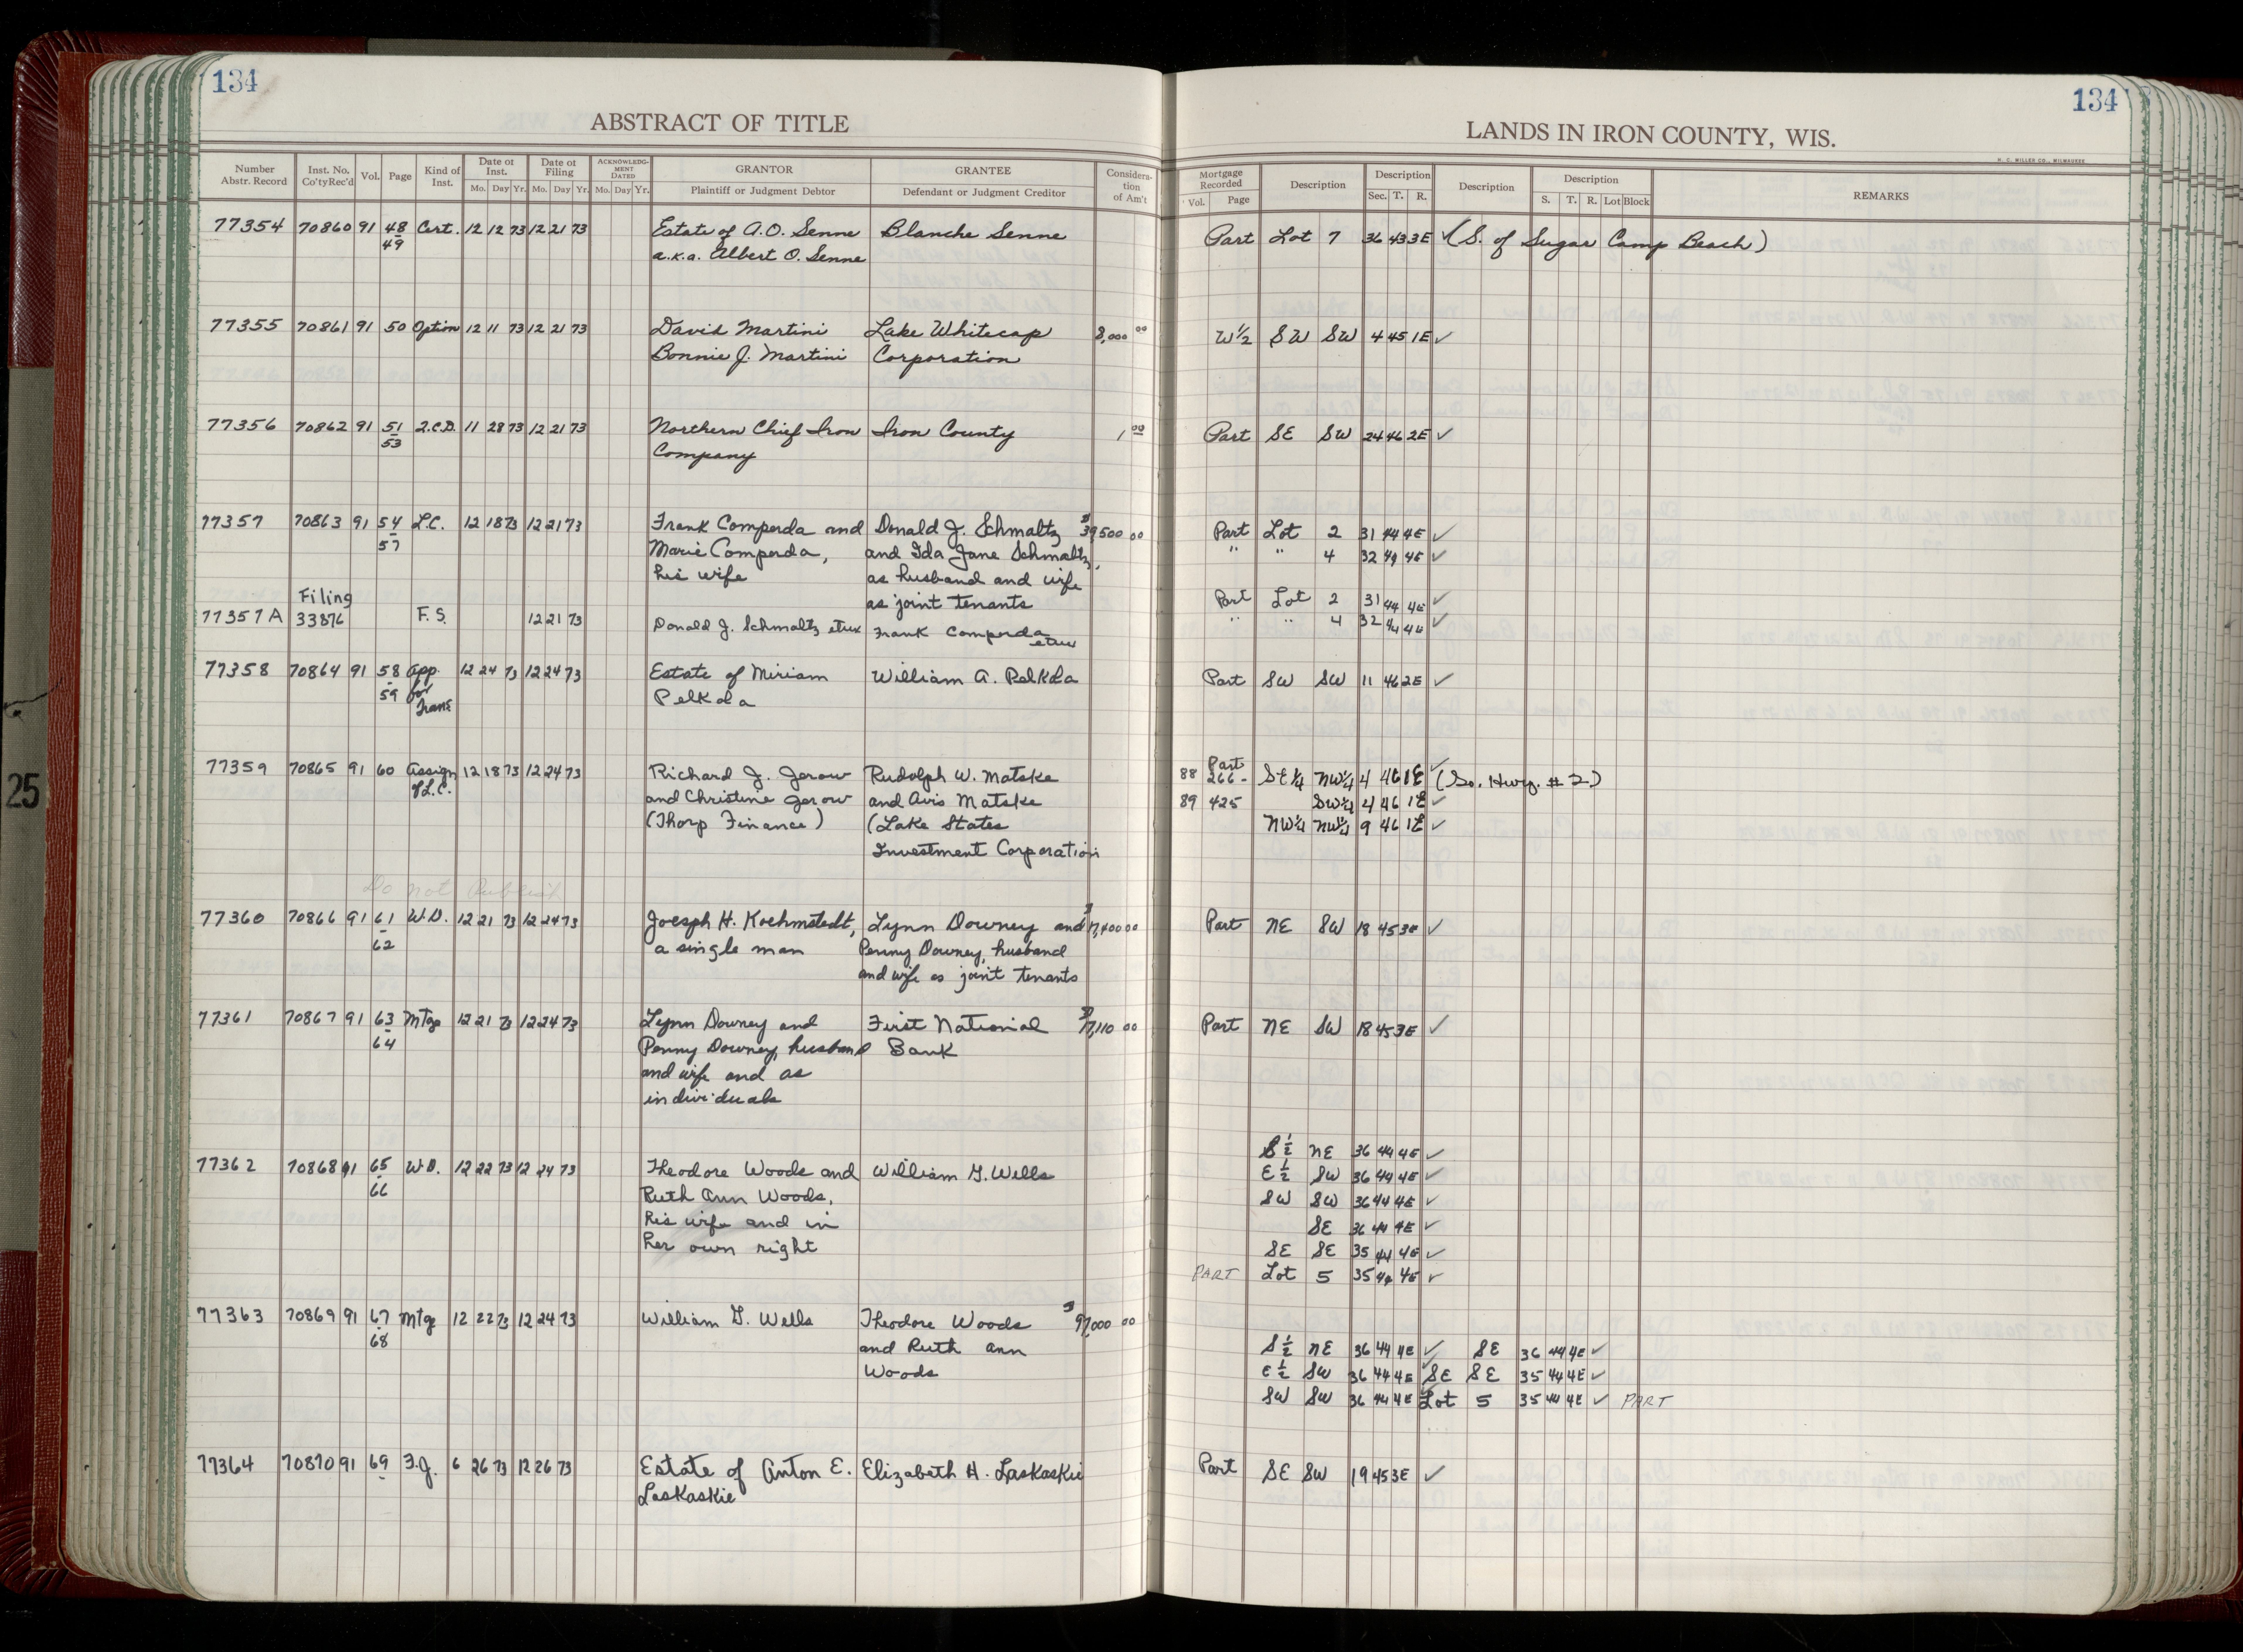 134
ABSTRACT OF TITLE
Number Abstr. Record | Inst. No. Co'ty Rec'd | Vol. | Page | Kind of Inst. | Date of Inst. Mo. Day Yr. | Date of Filing Mo. Day Yr. | ACKNOWLEDGMENT DATED Mo. Day Yr. | GRANTOR Plaintiff or Judgment Debtor | GRANTEE Defendant or Judgment Creditor | Consideration of Am't
77354 70860 91 48 Cert. 12 12 73 12 21 73 Estate of A.O. Senne Blanche Senne
49 a.k.a. Albert O. Senne
77355 70861 91 50 Option 12 11 73 12 21 73 David Martini Lake Whitecap 8,000 00
Bonnie J. Martini Corporation
77356 70862 91 51 Q.C.D. 11 28 73 12 21 73 Northern Chief Iron Iron County 1 00
53 Company
77357 70863 91 54 L.C. 12 18 73 12 21 73 Frank Comperda and Donald J. Schmaltz $39,500 00
57 Marie Comperda, and Ida Jane Schmaltz,
his wife as husband and wife
Filing as joint tenants
77357 A 33876 F.S. 12 21 73 Donald J. Schmaltz etux Frank Comperda etux
77358 70864 91 58 App. 12 24 73 12 24 73 Estate of Miriam William A. Pelkola
59 for Pelkola
Trans
77359 70865 91 60 Assign 12 18 73 12 24 73 Richard J. Jerow Rudolph W. Matske
of L.C. and Christine Jerow and Avis Matske
(Thorp Finance) (Lake States
Investment Corporation
Do not Publish
77360 70866 91 61 W.D. 12 21 73 12 24 73 Joesph H. Koehmstedt, Lynn Downey and $17,400 00
62 a single man Penny Downey, husband
and wife as joint tenants
77361 70867 91 63 Mtge 12 21 73 12 24 73 Lynn Downey and First National $17,110 00
64 Penny Downey, husband Bank
and wife and as
individuals
77362 70868 91 65 W.D. 12 22 73 12 24 73 Theodore Woods and William G. Wells
66 Ruth Ann Woods,
his wife and in
her own right
77363 70869 91 67 Mtge 12 22 73 12 24 73 William G. Wells Theodore Woods $97,000 00
68 and Ruth Ann
Woods
77364 70870 91 69 F.J. 6 26 73 12 26 73 Estate of Anton E. Elizabeth H. Laskaskie
Laskaskie
25
134
LANDS IN IRON COUNTY, WIS.
H. C. MILLER CO., MILWAUKEE
Mortgage Recorded Vol. Page | Description | Description Sec. T. R. | Description | Description S. T. R. Lot Block | REMARKS
Part Lot 7 36 43 3E ✓ (S. of Sugar Camp Beach)
W½ SW SW 4 45 1E ✓
Part SE SW 24 46 2E ✓
Part Lot 2 31 44 4E ✓
" " 4 32 44 4E ✓
Part Lot 2 31 44 4E ✓
" " 4 32 44 4E ✓
Part SW SW 11 46 2E ✓
Part
88 266- SE¼ NW¼ 4 46 1E ✓ (So. Hwy. #2)
89 425 SW¼ 4 46 1E ✓
NW¼ NW¼ 9 46 1E ✓
Part NE SW 18 45 3E ✓
Part NE SW 18 45 3E ✓
S½ NE 36 44 4E ✓
E½ SW 36 44 4E ✓
SW SW 36 44 4E ✓
SE 36 44 4E ✓
SE SE 35 44 4E ✓
PART Lot 5 35 44 4E ✓
S½ NE 36 44 4E ✓ SE 36 44 4E ✓
E½ SW 36 44 4E ✓ SE SE 35 44 4E ✓
SW SW 36 44 4E ✓ Lot 5 35 44 4E ✓ PART
Part SE SW 19 45 3E ✓